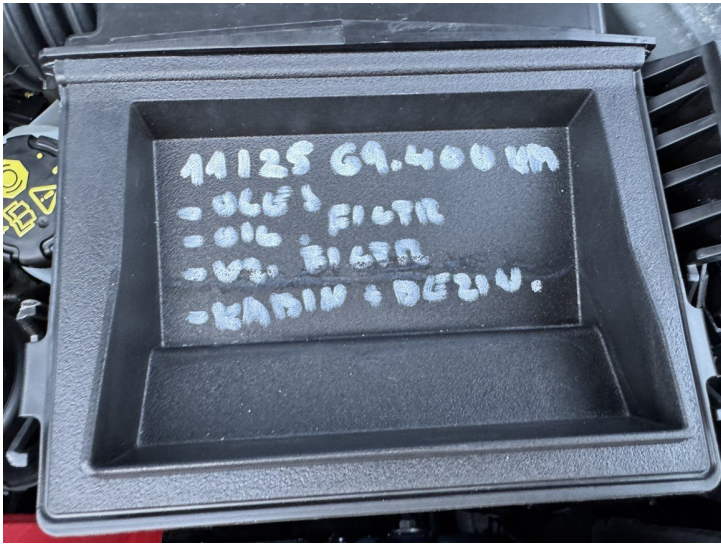 11/25 69.400 km
- OLEJ
- OLE. FILTR
- VZ. FILTR
- KABIN + DEZIN.